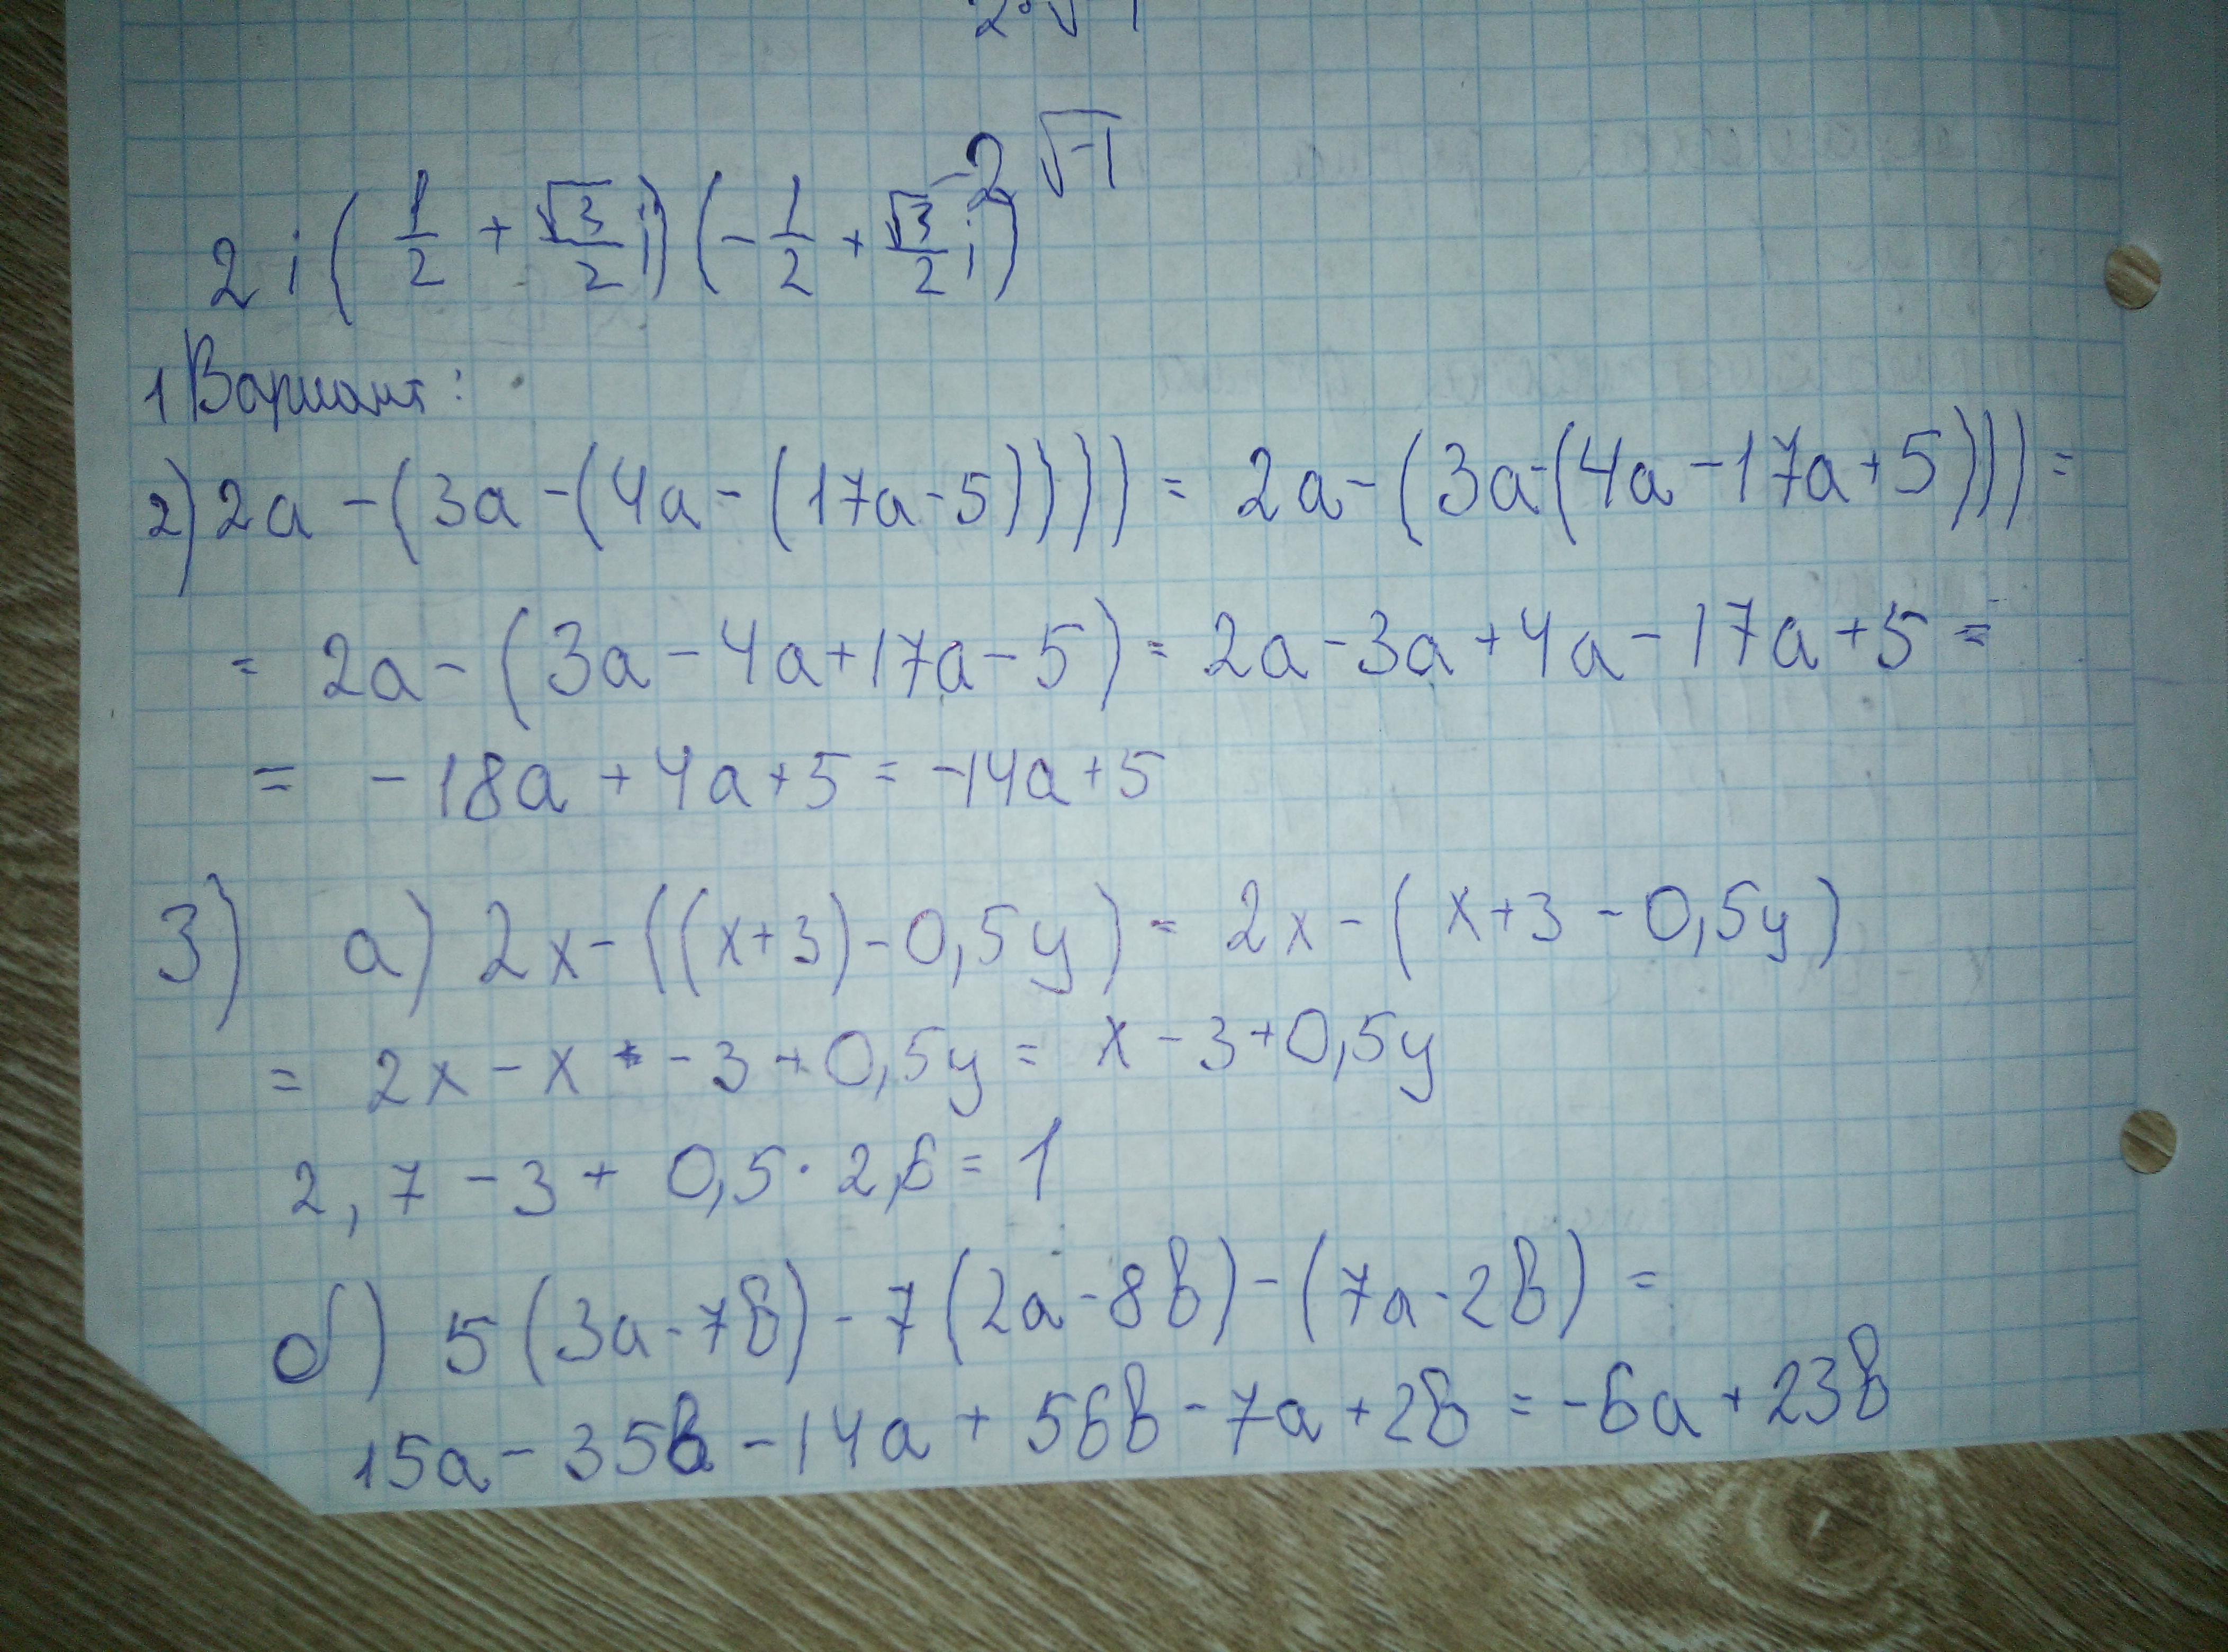 2·√-1
-2√-1
2i(1/2 + √3/2 i)(-1/2 + √3/2 i)
1 Вариант:
2) 2a - (3a - (4a - (17a - 5)))) = 2a - (3a - (4a - 17a + 5))) =
= 2a - (3a - 4a + 17a - 5) = 2a - 3a + 4a - 17a + 5 =
= -18a + 4a + 5 = -14a + 5
3) а) 2x - ((x+3) - 0,5y) = 2x - (x + 3 - 0,5y)
= 2x - x - 3 + 0,5y = x - 3 + 0,5y
2,7 - 3 + 0,5 · 2,6 = 1
б) 5(3a - 7b) - 7(2a - 8b) - (7a - 2b) =
15a - 35b - 14a + 56b - 7a + 2b = -6a + 23b